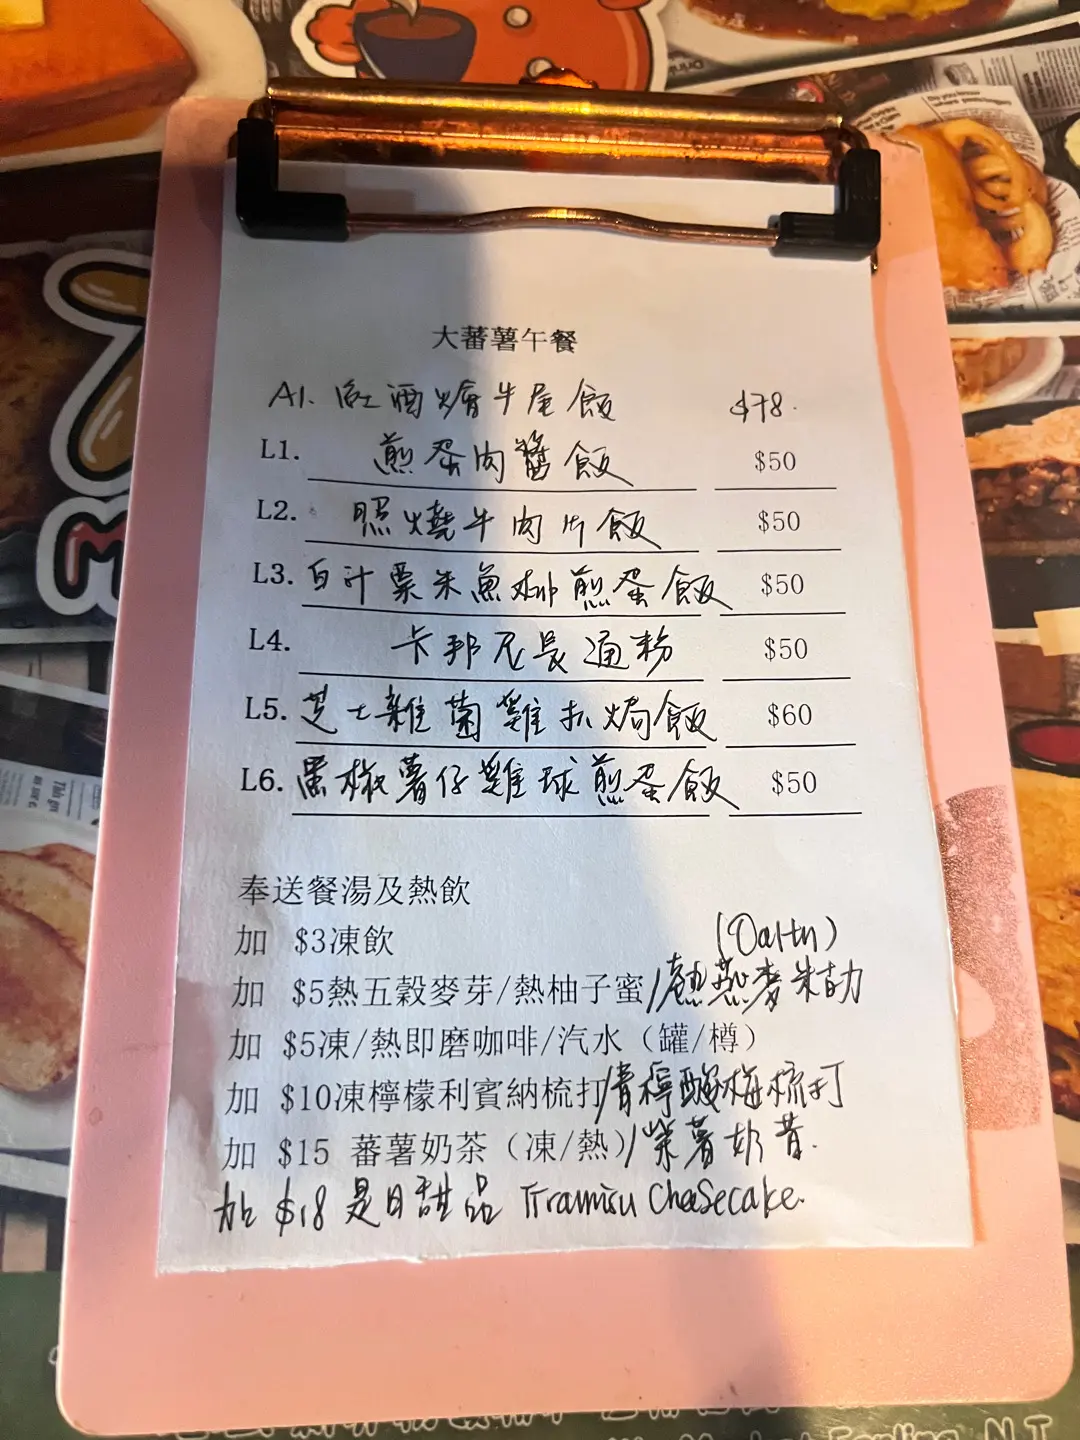 大蕃薯午餐
A1. 紅酒燴牛尾飯 $78.
L1. 煎蛋肉醬飯 $50
L2. 照燒牛肉片飯 $50
L3. 白汁粟米魚柳煎蛋飯 $50
L4. 卡邦尼長通粉 $50
L5. 芝士雜菌雞扒焗飯 $60
L6. 黑椒薯仔雞球煎蛋飯 $50
奉送餐湯及熱飲
加 $3凍飲 (Oaltn)
加 $5熱五穀麥芽/熱柚子蜜/熱燕麥朱古力
加 $5凍/熱即磨咖啡/汽水（罐/樽）
加 $10凍檸檬利賓納梳打/青檸酸梅梳打
加 $15 蕃薯奶茶（凍/熱）/紫薯奶昔.
加 $18 是日甜品 Tiramisu Cheesecake.